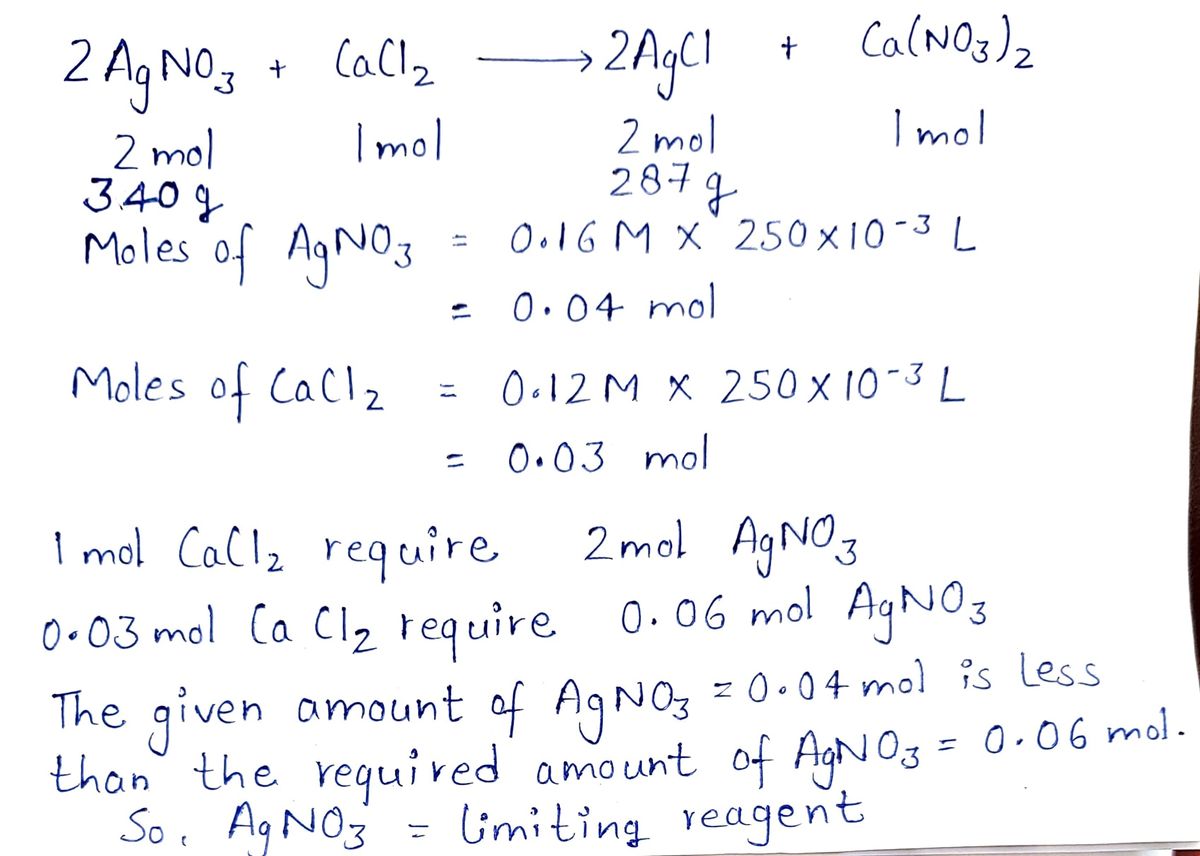 2 AgNO₃ + CaCl₂ ⟶ 2AgCl + Ca(NO₃)₂
2 mol 1 mol 2 mol 1 mol
3.40 g 287 g
Moles of AgNO₃ = 0.16 M × 250×10⁻³ L
= 0.04 mol
Moles of CaCl₂ = 0.12 M × 250×10⁻³ L
= 0.03 mol
1 mol CaCl₂ require 2 mol AgNO₃
0.03 mol CaCl₂ require 0.06 mol AgNO₃
The given amount of AgNO₃ = 0.04 mol is less
than the required amount of AgNO₃ = 0.06 mol.
So, AgNO₃ = limiting reagent